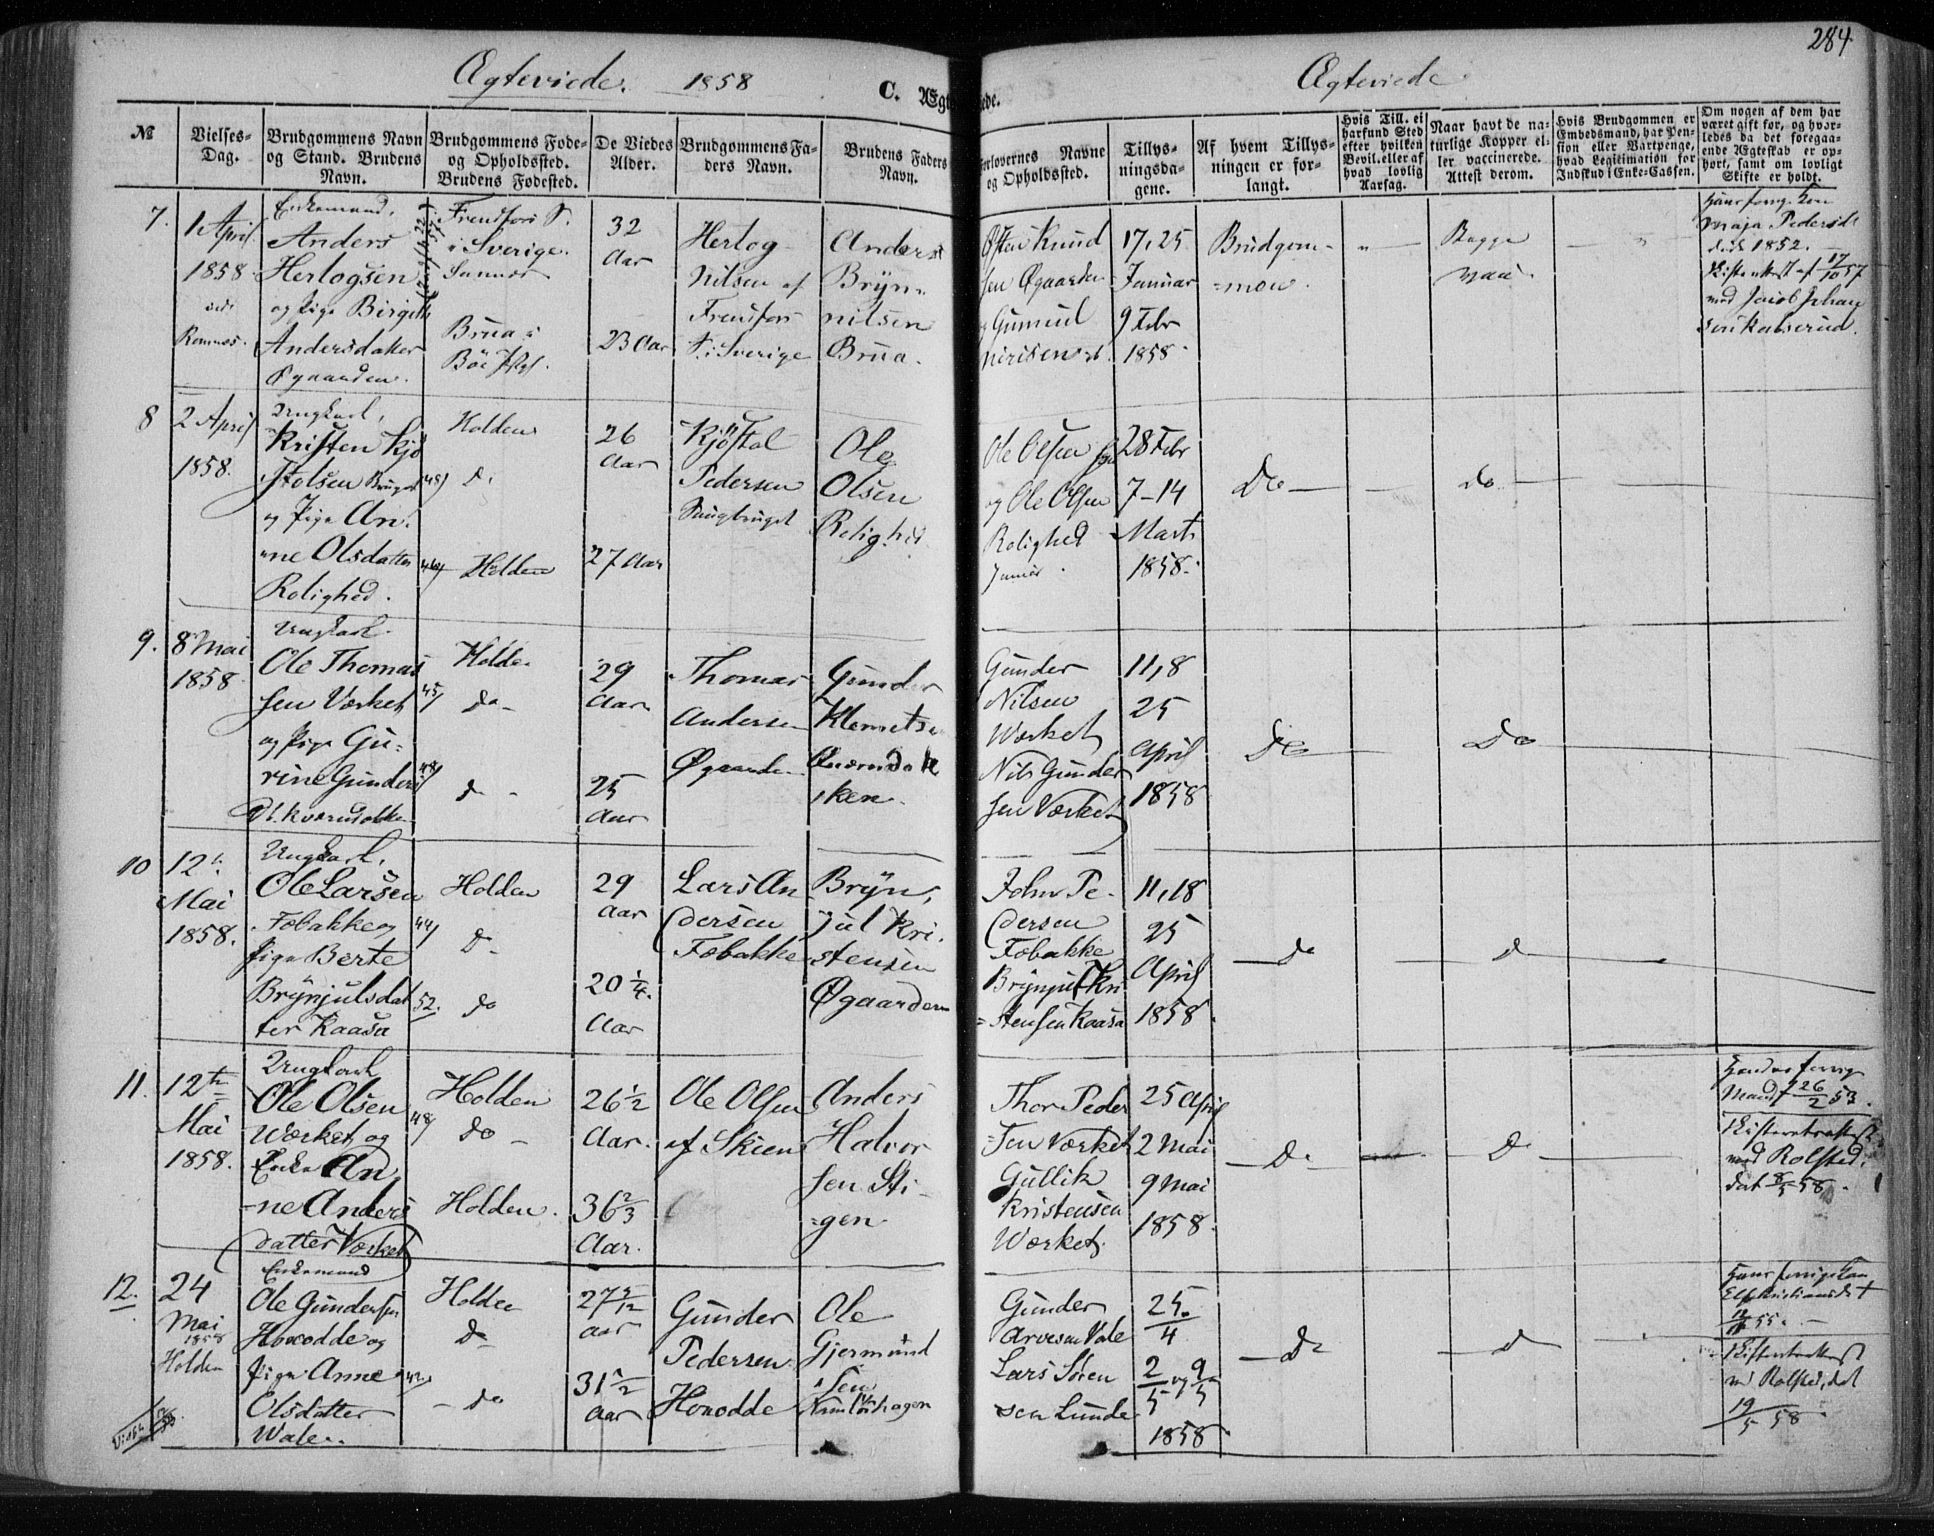 284.
Ægteviede. 1858
C. Ægteviede.
Ægteviede
№
Vielses-Dag.
Brudgommens Navn og Stand. Brudens Navn.
Brudgommens Føde- og Opholdssted. Brudens Fødested.
De Viedes Alder.
Brudgommens Faders Navn.
Brudens Faders Navn.
Forlovernes Navne og Opholdssted.
Tillysningsdagene.
Af hvem Tillysningen er forlangt.
Hvis Till. ei harfund Sted efter hvilken Bevil. eller af hvad lovlig Aarsag.
Naar havt de naturlige Kopper eller vaccinerede. Attest derom.
Hvis Brudgommen er Embedsmand, har Pension eller Vartpenge, hvad Legitimation for Indskud i Enke-Cassen.
Om nogen af dem har været gift før, og hvorledes da det foregaaende Ægteskab er ophørt, samt om lovligt Skifte er holdt.
7.
1 April
1858
Romnes.
Enkemand,
Anders
Hertogsen
og Pige Birgitte
Andersdatter
Øgaarden.
i Sverige.
Brua i
Böe
32
Aar
23 Aar
Hertog
Nilsen af
i Sverige
Anders
Bryn-
nilsen
Brua.
Østen Knud
sen Øgaarden
og Gunnul
17, 25
Januar
9 Febr
1858.
Brudgom-
=men.
"
Begge
vac.
"
Hans forrige Kone
Maja Pedersd.
död 1852.
med Jacob Johan
8
2 April
1858.
Ungkarl,
Kristen Kjö
stolsen Bruget
og Pige An-
=ne Olsdatter
Rolighed.
48)
46)
Holden
d.
Holden
26
Aar
27 Aar
Kjöstol
Pedersen
Saugbruget
Ole
Olsen
Rolighed
Ole Olsen
og Ole Olsen
Rolighed
Junior.
28 Febr
7-14
Marts
1858.
Do
do
9.
8 Mai
1858
Ungkarl.
Ole Thomas
sen Værket
og Pige Gu=
rine Gunders
Dt. Kværndokken
45)
Holden
do
d
29
Aar
25
Aar
Thomas
Andersen
Øgaarden
Gunder
Klemetsen
Qværndok
ken.
Gunder
Nilsen
Værket
Nils Gunder
sen Værket
11, 8
25
April
1858
Do
Do
10
12.
Mai
1858.
Ungkarl,
Ole Larsen
Fæbakke og
Pige Berte
Brynjulsdat
ter Kaasa
44)
52.
Holden
D
do
29
Aar
20 1/4.
Aar
Lars An
dersen
Fæbakke
Bryn,
jul Kri-
stensen
Øgaarden
John Pe-
dersen
Fæbakke
Brynjul Kri
=stensen Kaasa
11, 18
25
April
1858.
do
d
11.
12te
Mai
1858.
Ungkarl
Ole Olsen
Værket og
Enke An
=ne Anders
datter Værket
48)
Holden
do
Holden.
26 1/2
Aar.
36 2/3
Aar.
Ole Olsen
af Skien
Anders
Halvor
sen Sti-
=gen
Thor Peder
=sen Værket
Gullik
Kristensen
Værket.
25 April
2 Mai
9 Mai
1858.
Do
D
Hendes forrige
Mand † 26/2 53.
Skifteretsattest
med Rolsted,
dat 8/5 58.
12.
24
Mai
1858
Holden
Enkemand
Ole Gundersen
Honodde og
Pige Anne
Olsdatter
Wale.
42
Holden
D
do
27 5/12
Aar
31 1/2
Aar
Gunder
Pedersen
Honodde
Ole
Gjermund
sen
Gunder
Arvesen Vale
Lars Sören
sen Lunde
25/4
2/5 og 9/5
1858
D
d
Hans forrige Kone
Else Kristiansdt †
55.
Skifteretsattest
med Rolsted, dat
19/5 58.